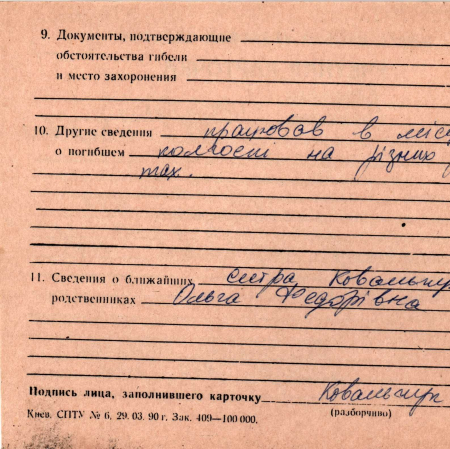 9. Документы, подтверждающие
обстоятельства гибели
и место захоронения
10. Другие сведения працював в міс
о погибшем колгоспі на різних
тах.
11. Сведения о ближайших сестра Ковальчу
родственниках Ольга Федорівна
Подпись лица, заполнившего карточку Ковальчук
(разборчиво)
Киев. СПТУ № 6. 29. 03. 90 г. Зак. 409—100 000.